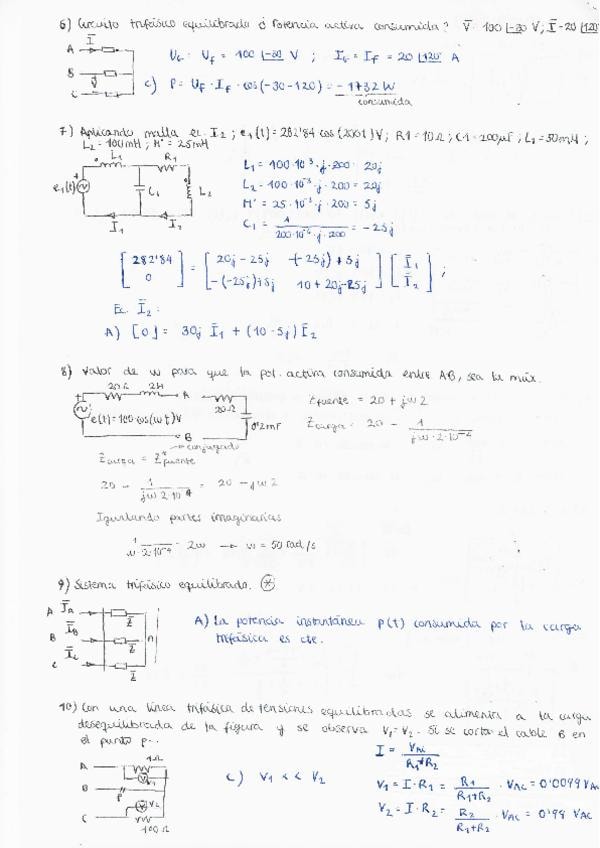 6) Circuito trifásico equilibrado ¿Potencia activa consumida? V̄ = 100 |-30 V; Ī = 20 |120°
A Ī
B
V̄
C
U_f = 100 |-30 V ; I_f = 20 |120° A
C) P = U_f · I_f · cos(-30-120) = -1732 W
consumida
7) Aplicando malla ec. I₂; e₁(t) = 282'84 cos(200t) V; R1 = 10Ω; C1 = 200μF; L₁ = 50mH;
L₂ = 100mH; M' = 25mH
L₁ R₁
e₁(t) C₁ L₂
I₁ I₂
L₁ = 100·10⁻³·j·200 = 20j
L₂ = 100·10⁻³·j·200 = 20j
M' = 25·10⁻³·j·200 = 5j
C₁ = 1/(200·10⁻⁶·j·200) = -25j
[282'84 0] = [20j-25j -(-25j)+5j -(-25j)+5j 10+20j-25j] [Ī₁ Ī₂] ;
Ec. Ī₂:
A) [0] = 30j Ī₁ + (10-5j) Ī₂
8) Valor de w para que la pot. activa consumida entre AB, sea la máx.
20Ω 2H A 20Ω
e(t)=100·cos(wt)V 0'2mF
B
Z fuente = 20 + jw2
Z carga = 20 - 1/(jw·2·10⁻⁴)
conjugado
Z carga = Z* fuente
20 - 1/(jw·2·10⁻⁴) = 20 - jw2
Igualando partes imaginarias
1/(w·2·10⁻⁴) = 2w → w = 50 rad/s
9) Sistema trifásico equilibrado. *
A Ī_A Z̄
B Ī_B Z̄ n
C Ī_C Z̄
A) La potencia instantánea p(t) consumida por la carga
trifásica es cte.
10) Con una línea trifásica de tensiones equilibradas se alimenta a la carga
desequilibrada de la figura y se observa V₁=V₂. Si se corta el cable B en
el punto P...
A 1Ω
V1
B P
V2
C 100Ω
C) V₁ < < V₂
I = V_AC/(R₁+R₂)
V₁ = I·R₁ = R₁/(R₁+R₂) · V_AC = 0'0099 V_AC
V₂ = I·R₂ = R₂/(R₁+R₂) · V_AC = 0'99 V_AC